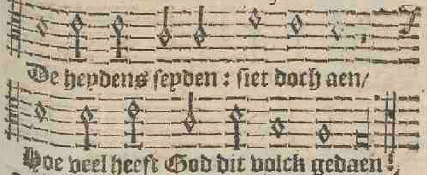 De heydens seyden : siet doch aen/
Hoe veel heeft God dit volck gedaen!